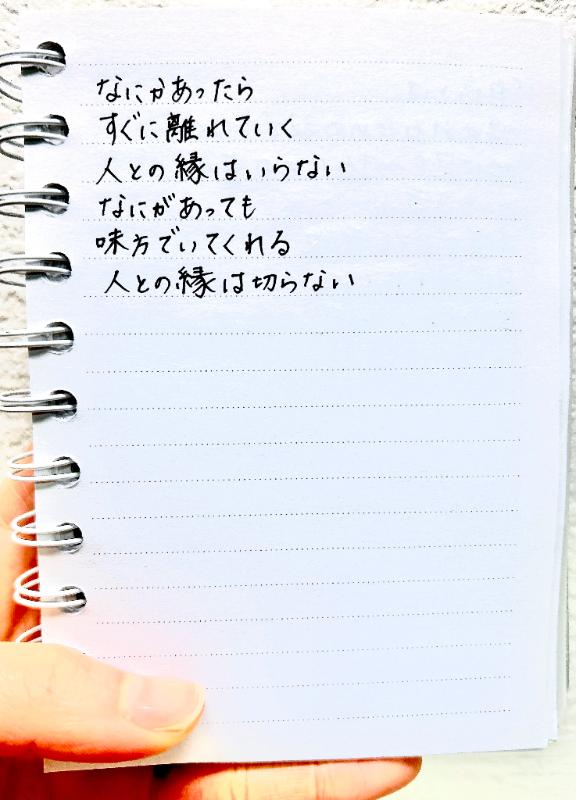 なにかあったら
すぐに離れていく
人との縁はいらない
なにがあっても
味方でいてくれる
人との縁は切らない